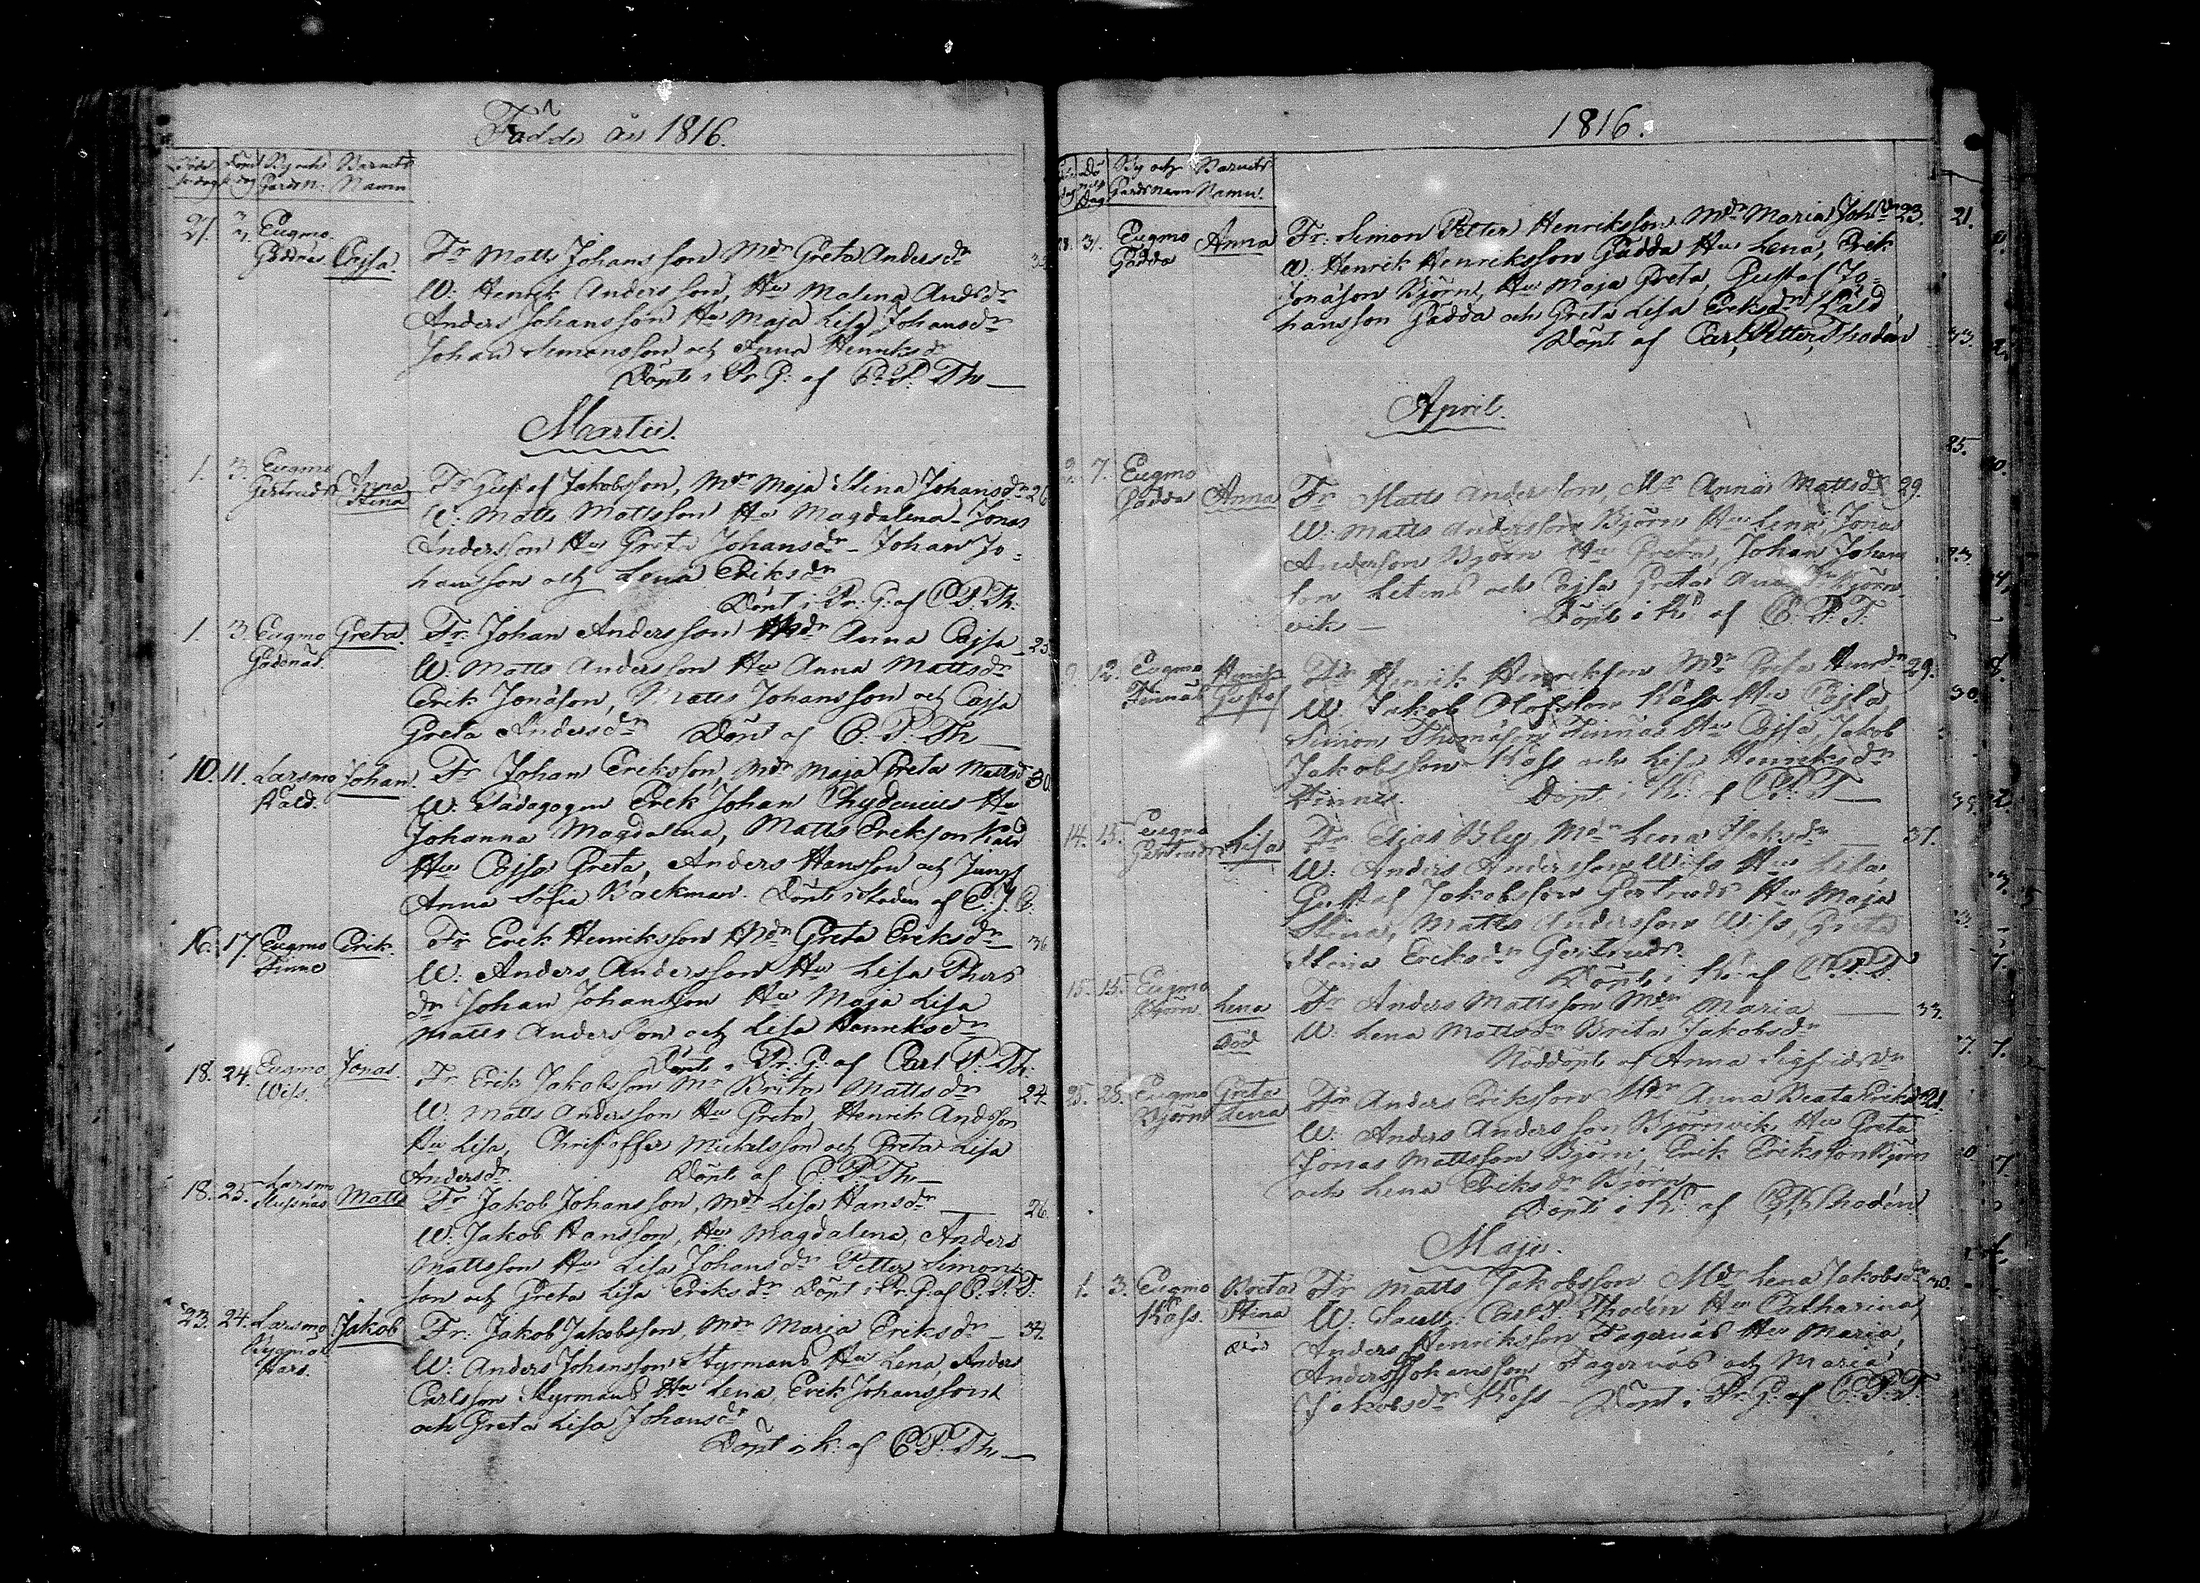 Födde år 1816.
Födelsedag Döpelsedag By och Gårdsn: Barnets Namn
27. 3/3 Eugmo Gädnäs Cajsa. Fr Matts Johansson Mdr Greta Andersdr
W. Henrik Andersson, Hu Malena Andsdr
Anders Johansson Hu Maja Lisa Johansdr
Johan Simonsson och Anna Henriksdr
Döpt i Pr. G: af C. P. Th
Martii.
1. 3. Eugmo Gertruds Anna Stina Fr Gustaf Jakobsson, Mdr Maja Stina Johansdr 26
W: Matts Mattsson Hu Magdalena - Jonas
Andersson Hu Greta Johansdr - Johan Jo-
hansson och Lena Eriksdr
Döpt i Pr: G: af C. P. Th:
1. 3. Eugmo Gädnäs. Greta. Fr. Johan Andersson Mdr Anna Cajsa 25
W. Matts Andersson Hu Anna Mattsdr
Erik Jonasson, Matts Johansson och Cajsa
Greta Andersdr Döpt af C. P. Th
10. 11. Larsmo Kald. Johan. Fr Johan Eriksson, Mdr Maja Greta Mattsd 30.
W: Pädagogen Erik Johan Chydenius Hu
Johanna Magdalena, Matts Eriksson Kald
Hu Cajsa Greta, Anders Hansson och Jungf
Anna Sofia Backman. Döpt i Staden af E. J. C.
16. 17. Eugmo Finne Erik. Fr Erik Henriksson Mdr Greta Eriksdr 36
W. Anders Andersson Hu Lisa Phers
dr Johan Johansson Hu Maja Lisa
Matts Andersson och Lisa Henriksdr
Döpt i Pr: G: af Carl P. Th:
18. 24. Eugmo Wiss. Jonas. Fr Erik Jakobsson Mr Brita Mattsdr 24.
W. Matts Andersson Hu Greta Henrik Andsson
Hu Lisa, Christoffer Mickelsson och Greta Lisa
Andersdr. Döpt af C. P. Th
18. 25. Larsmo Slussnäs Matts Fr Jakob Johansson, Mdr Lisa Hansdr 26.
W. Jakob Hansson, Hu Magdalena, Anders
Mattsson Hu Lisa Johansdr Petter Simons
son och Greta Lisa Eriksdr Döpt i Pr. G. af C. P. T:
23. 24. Larsmo Jakob Fr. Jakob Jakobsson, Mdr Maria Eriksdr 34.
W. Anders Johansson Styrmans Hu Lena, Anders
Carlsson Styrmans Hu Lena, Erik Johansson
och Greta Lisa Johansdr
Döpt i K. af C P. Th
1816.
Döpelse Dag By och Gårdsnamn Barnets Namn.
28. 31. Eugmo Gädda Anna Fr: Simon Petter Henriksson Mdr Maria Johsdr 23.
W. Henrik Henriksson Gädda Hu Lena, Erik
Jonasson Björn, Hu Maja Greta, Gustaf Jo-
hansson Gädda och Greta Lisa Eriksdr Kald
Döpt af Carl Petter Thodén
April.
2. 7. Eugmo Gädda Anna Fr Matts Andersson, Mr Anna Mattsdr 29.
W. Matts Andersson Björn Hu Lena, Jona
Andersson Björn Hu Greta, Johan Johans
son Letens och Cajsa Greta Andsdr Björn-
vik Döpt i K. af C. P. T.
9. 12. Eugmo Finnäs Henrik Gustaf Fr Henrik Henriksson Mdr Greta Henrdr 29.
W. Jakob Olofsson Käss Hu Cajsa,
Simon Thomasson Finnäs Hu Cajsa, Jakob
Jakobsson Käss och Lisa Henriksdr
Finnäs. Döpt i K. af C. P. T
14. 15. Eugmo Gertruds Lisa Fr Elias Bly Mdr Lena Isaksdr 37.
W. Anders Andersson Wiss Hu Lisa
Gustaf Jakobsson Gertruds Hu Maja
Stina, Matts Andersson Wiss, Greta
Stina Eriksdr Gertruds.
Döpt i K. af C. P. T
15. 15. Eugmo Björn. Lena Död Fr Anders Mattsson Mdr Maria 33.
W. Lena Mattsdr Brita Jakobsdr
Nöddöpt af Anna Sigfridsdr
25. 28. Eugmo Björn Greta Lena Fr Anders Eriksson Mdr Anna Beata Eriksdr 21.
W. Anders Andersson Björnvik Hu Greta
Jonas Mattsson Björn, Erik Eriksson Björn
och Lena Eriksdr Björn
Döpt i K. af C. P. Thodén
Maji.
1. 3. Eugmo Käss. Brita Stina Död Fr Matts Jakobsson Mdr Lena Jakobsdr 30.
W. Carl P. Thodén Hu Catharina,
Anders Henriksson Fagernäs Hu Maria,
Anders Johansson Fagernäs och Maria
Jakobsdr Käss - Döpt i Pr. G: af C. P. T.